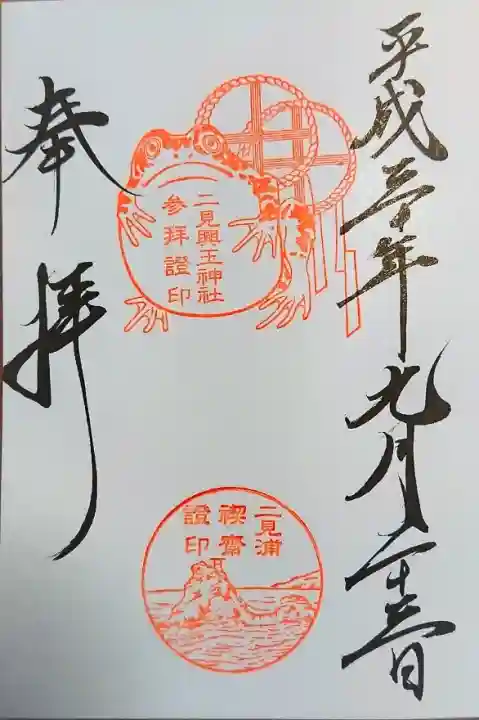 平成三十年九月二十三日
二見興玉神社
参拝證印
二見浦
禊齋
證印
奉拝